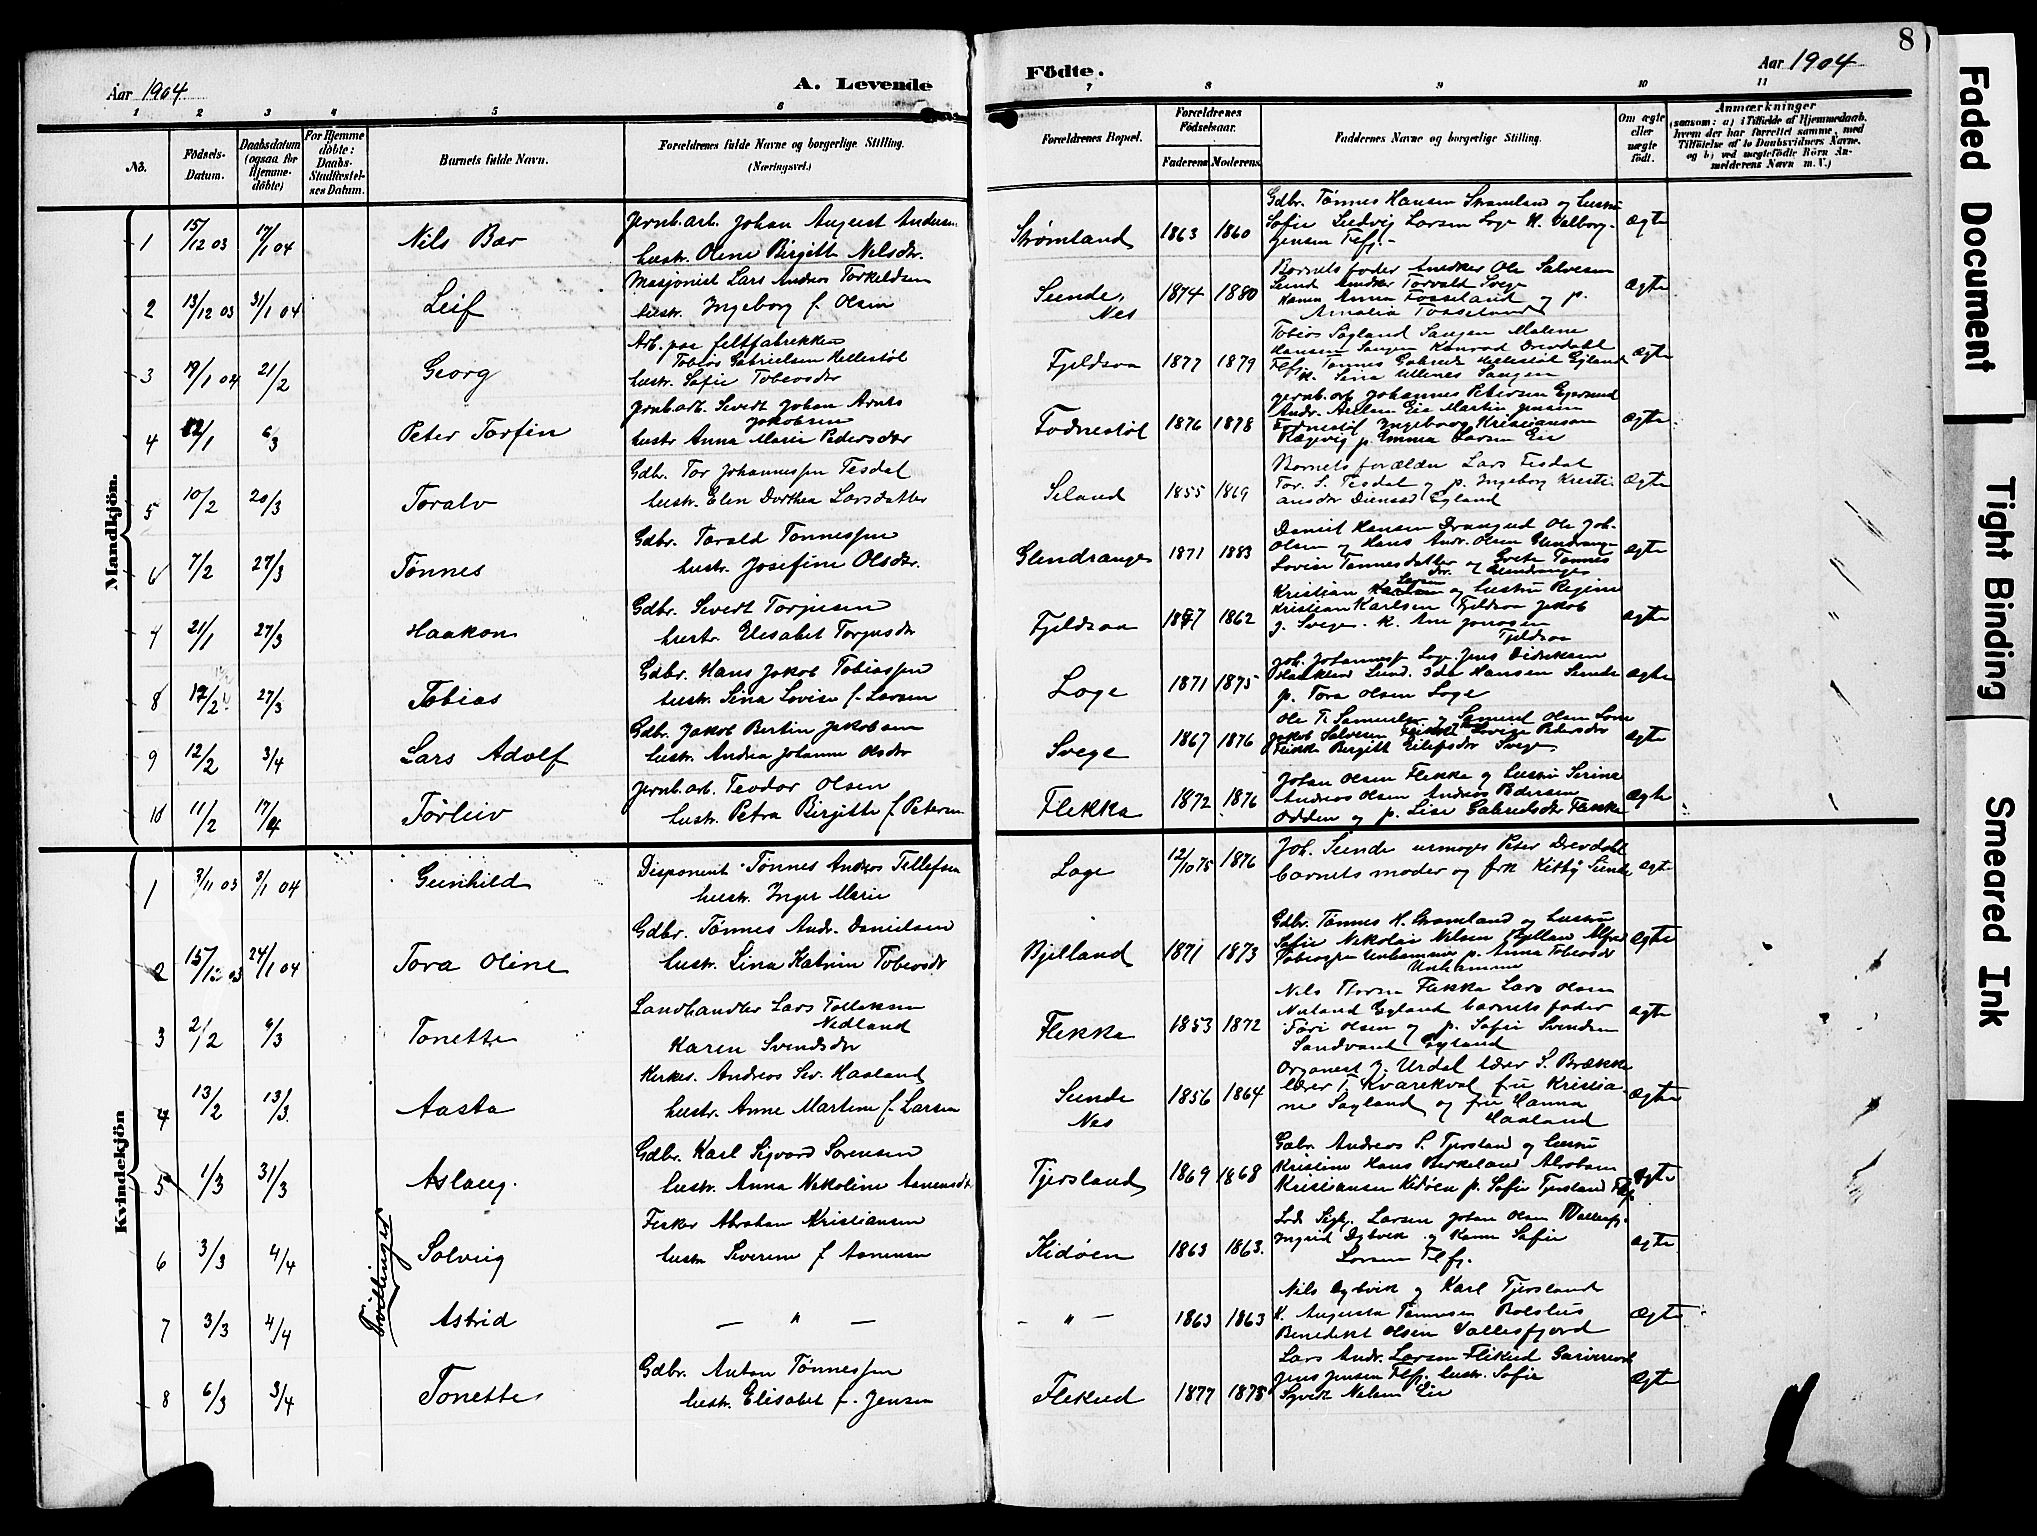 8
Aar 1904
A. Levende
Födte.
Aar 1904
1 2 3 4 5 6 7 8 9 10 11
No.
Födsels-Datum.
Daabsdatum (ogsaa for Hjemme-döbte)
For Hjemme döbte: Daabs-Stadfæstel-ses Datum.
Barnets fulde Navn.
Forældrenes fulde Navne og borgerlige Stilling. (Næringsvei.)
Forældrenes Bopæl.
Forældrenes Födselsaar.
Faderens Moderens
Faddernes Navne og borgerlige Stilling.
Om ægte eller uægte födt.
Anmærkninger
(saasom: a) i Tilfælde af Hjemmedaab, hvem der har forrettet samme, med Tilföielse af to Daabsvidners Navne, og b) ved uægtefödte Börn An-melderens Navn m. V.)
Mandkjön.
1 15/12 03 17/1 04 Nils Bar
Jernb.arb. Johan August Anders
hustr. Oline Birgitte Nelsdtr.
Strømland 1863 1860
Gdbr. Tønnes Hansen Strømland og hustru
Sofie Ludvig Larsen Loge K. Valborg
Jensen Flfj.
Ægte
2 13/12 03 31/1 04 Leif
Masjonist Lars Andreas Torkeldsen
hustr. Ingeborg f. Olsen
Sunde, Nes 1874 1880
Barnets fader Ole Salvesen
Sund Torvald Svege
Anna Fosseland og p.
Amalia Fosseland
Ægte
3 19/1 04 21/2 Georg
Arb. paa feltfabrekken
Tobias Gabrielsen Hellestøl
hustr. Sofie Tobiasdtr
Fjeldsaa 1877 1879
Tobias Sagland Sangen Malene
Hansen Sangen Konrad Drevdahl
Flfj. Tønnes Gabriels Hellestøl Gyland
K. Sina Ullenes Sangen
Ægte
4 12/1 6/3 Peter Torfin
Jernb.arb. Severt Johan Arnts
Jakobsen
hustr Anna Marie Pedersdtr
Fodnestøl 1876 1878
Jernb.arb Johannes Petersen Egersund
Andr. Eie Martin Jensen
Ingeborg Kristiansen
Rægevig p. Emma Larsen Eie
Ægte
5 10/2 20/3 Toralv
Gdbr. Tor Johannessen Tesdal
hustr. Elen Dorthea Larsdatter
Seland 1855 1869
Barnets forældre Lars Tesdal
Tor. S. Tesdal og p. Ingeborg Kristi-
ansdtr Gyland
Ægte
6 7/2 27/3 Tønnes
Gdbr. Tarald Tønnessen
hustr. Josefine Olsdtr.
Glendrange 1871 1883
Daniel Hansen Drangsd Ole Joh.
Olsen og Hans Andr. Olsen Glendrange
Lovise Tønnesdatter og Grete Tønnes
dtr. Glendrange
Ægte
7 21/1 27/3 Haakon
Gdbr. Severt Torjusen
hustr. Elisabet Torjusdtr
Fjeldsaa 1877 1862
Kristian Larsen og hustru Regine
Kristian Karlsen Fjeldsaa Jakob
J. Svege. K. Ane Jonasen
Fjeldsaa
Ægte
8 17/2 27/3 Tobias
Gdbr. Hans Jakob Tobiassen
hustr. Sina Lovise f. Larsen
Loge 1871 1875
Joh. Johannesf Loge Jens Didriksen
Lund. Ida Hansen Sunde
p. Tora Olsen Loge
Ægte
9 12/2 3/4 Lars Adolf
Gdbr. Jakob Bertin Jakobsen
hustr. Andrea Johanne Olsdtr
Svege 1867 1876
Ole T. Samuelsen og Samuel Olsen
Jakob Salvesen Flikke Lovise Petersdtr
Flikke Birgitt Eilefsdtr Svege
Ægte
10 11/2 17/4 Tørleiv
Jernb.arb. Teodor Olsen
hustr. Petra Birgitte f. Petersen
Flekke 1872 1876
Johan Olsen Flekke og hustru Serine
Andreas Olsen Andreas Pedersen
Odden og p. Lise Gabrielsdtr Flekke
Ægte
Kvindekjön
1 3/11 03 3/1 04 Gunhild
Disponent Tønnes Andreas Tellefsen
hustr. Inger Marie
Loge 12/10 75 1876
Joh. Sunde urmager Peter Drevdahl
barnets moder og frk Kitty Sunde
Ægte
2 15/12 03 24/1 04 Tora Oline
Gdbr. Tønnes Andr. Danielsen
hustr. Lina Katrine Tobiasdtr
Bjelland 1871 1873
Gdbr. Tønnes H. Strømland og hustru
Sofie Nikolai Nilsen Bjelland Alfred
Tobiassen Unhammer p. Anna Tobiasdtr
Unhammer
Ægte
3 2/2 6/3 Tonette
Landhandler Lars Tolleksen
Nedland
Karen Svendsdtr
Flekke 1853 1872
Nils Flekke Lars Olsen
Nuland Gyland barnets fader
Tori Olsen og p. Sofie Svendsen
Sandvand Gyland
Ægte
4 13/2 13/3. Aasta
Kirkes. Andreas Sev. Haaland
hustr. Anne Martine f. Larsen
Sunde Nes 1856 1864
Organist J. Urdal lærer S. Brække
lærer T. Kvarekval fru Kristia-
ne Sagland og fru Hanna
Haaland
Ægte
5 1/3 31/3 Aslaug.
Gdbr. Karl Sigvard Sørensen
hustr. Anna Nikoline Aanensdtr
Tjersland 1869 1868
Gdbr. Andreas S. Tjersland og hustru
Kristine Hans Birkeland Abraham
Kristiansen Kidøen p. Sofie Tjersland Flfj
Ægte
Tvillinger
6 3/3 4/4 Solveig
Fisker Abraham Kristiansen
hustr Severine f. Aanensen
Kidøen 1863 1863.
Lods Larsen Johan Olsen
Ingrid Dybvik og Kone Sofie
Larsen Flfj.
Ægte
7 3/3 4/4 Astrid
— " —
— " —
1863 1863
Nils Dybvik og Karl Tjersland
K. Augusta Tønnesen Rolshus
Benedikt Olsen Vallesfjord
Ægte
8 6/3 3/4 Tonette
Gdbr. Anton Tønnessen
hustr. Elisabet f. Jensen
Flikeid 1877 1878
Lars Andr. Larsen Flikeid
Jens Jensen Flfj. hustr. Sofie
Nelsen Eie
Ægte
Faded Document
Tight Binding
Smeared Ink